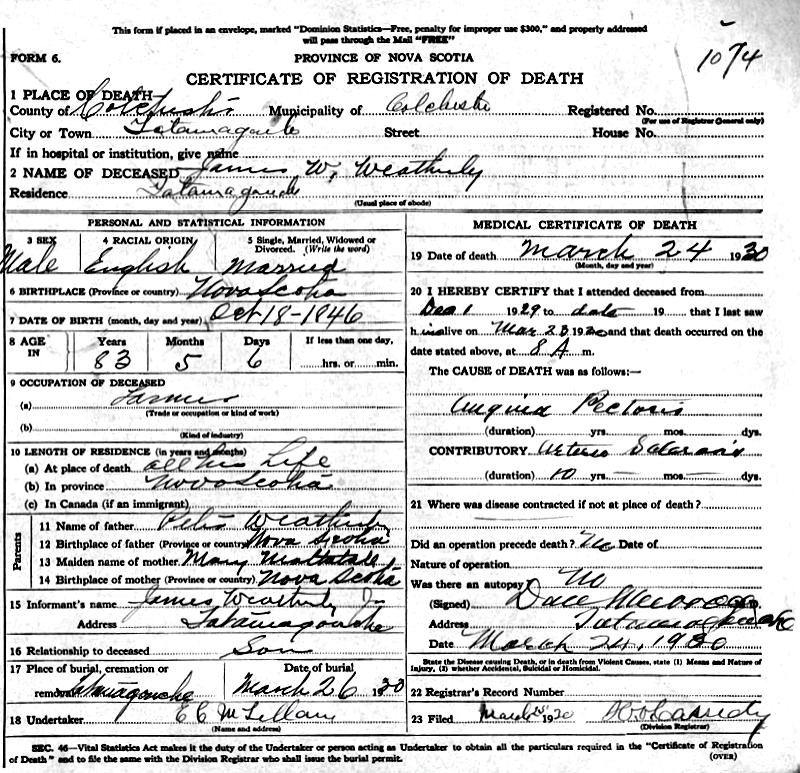 This form if placed in an envelope, marked "Dominion Statistics—Free, penalty for improper use $300," and properly addressed
will pass through the Mail "FREE"
1074
FORM 6.
PROVINCE OF NOVA SCOTIA
CERTIFICATE OF REGISTRATION OF DEATH
1 PLACE OF DEATH
County of Colchester Municipality of Colchester Registered No.
(For use of Registrar General only)
City or Town Tatamagouche Street House No.
If in hospital or institution, give name
2 NAME OF DECEASED James W. Weatherby
Residence Tatamagouche
(Usual place of abode)
PERSONAL AND STATISTICAL INFORMATION
3 SEX 4 RACIAL ORIGIN 5 Single, Married, Widowed or
Divorced. (Write the word)
Male English Married
6 BIRTHPLACE (Province or country) Nova Scotia
7 DATE OF BIRTH (month, day and year) Oct 18-1846
8 AGE Years Months Days If less than one day,
IN 83 5 6 hrs. or min.
9 OCCUPATION OF DECEASED
(a) Farmer
(Trade or occupation or kind of work)
(b)
(Kind of industry)
10 LENGTH OF RESIDENCE (in years and months)
(a) At place of death all his Life
(b) In province Nova Scotia
(c) In Canada (if an immigrant)
Parents
11 Name of father Weatherby
12 Birthplace of father (Province or country) Nova Scotia
13 Maiden name of mother Mary Mattatall
14 Birthplace of mother (Province or country) Nova Scotia
15 Informant's name James Weatherby Jr
Address Tatamagouche
16 Relationship to deceased Son
17 Place of burial, cremation or Date of burial
removal Tatamagouche March 26 1930
18 Undertaker E C McLellan
(Name and address)
MEDICAL CERTIFICATE OF DEATH
19 Date of death March 24 1930
(Month, day and year)
20 I HEREBY CERTIFY that I attended deceased from
Dec 1 1929 to date 19 that I last saw
him alive on Mar 23 1930 and that death occurred on the
date stated above, at 8 A m.
The CAUSE of DEATH was as follows:—
Angina Pectoris
(duration) yrs. mos. dys.
CONTRIBUTORY Arterio
(duration) 10 yrs. — mos. — dys.
21 Where was disease contracted if not at place of death?
Did an operation precede death? No Date of
Nature of operation
Was there an autopsy? No
(Signed) Dan M.D.
Address Tatamagouche
Date March 24, 1930
State the Disease causing Death, or in death from Violent Causes, state (1) Means and Nature of
Injury, (2) whether Accidental, Suicidal or Homicidal.
22 Registrar's Record Number
23 Filed March 1930 Cassidy
(Division Registrar)
SEC. 46—Vital Statistics Act makes it the duty of the Undertaker or person acting as Undertaker to obtain all the particulars required in the "Certificate of Registration
of Death" and to file the same with the Division Registrar who shall issue the burial permit.
(OVER)